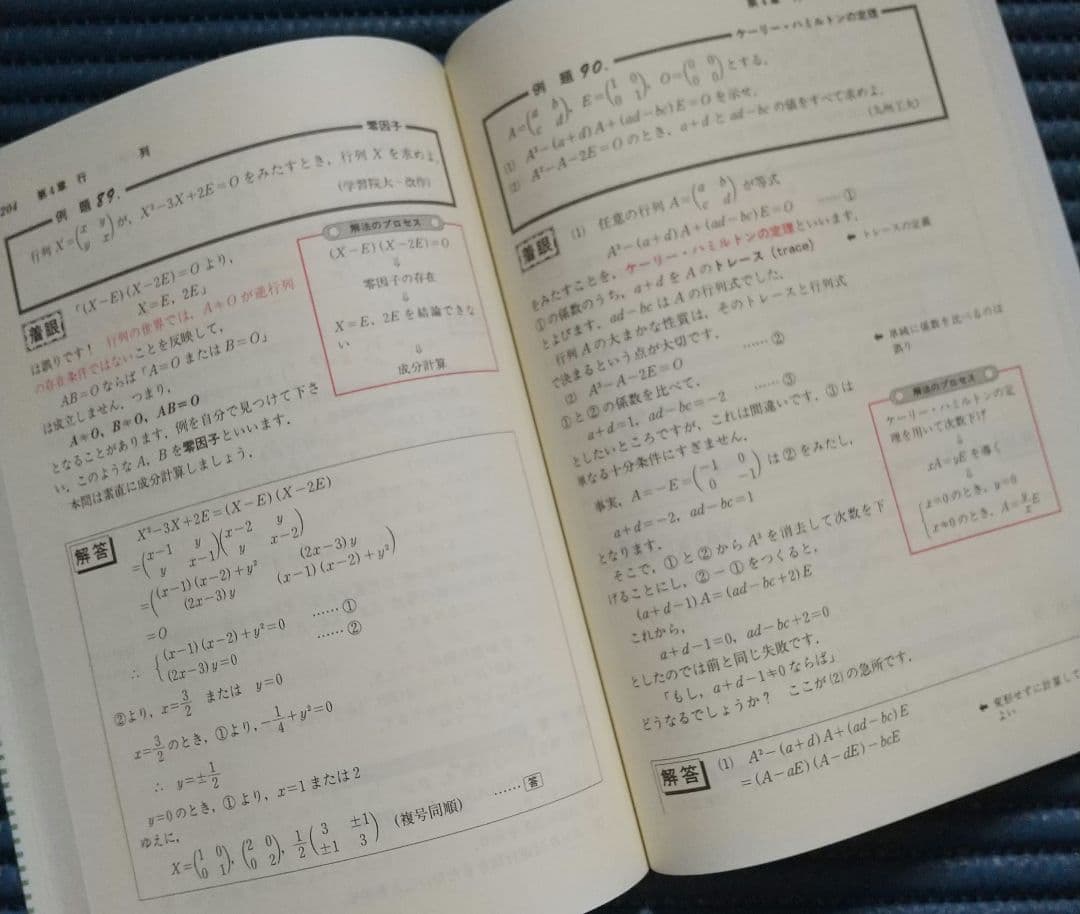 204 第4章 行 列
例題 89. 零因子
行列 X=(x y / y x) が, X²−3X+2E=O をみたすとき, 行列 X を求めよ.
(学習院大−改作)
着眼
「(X−E)(X−2E)=O より,
X=E, 2E」
は誤りです! 行列の世界では, A≠O が逆行列
の存在条件ではないことを反映して,
AB=O ならば「A=O または B=O」
は成立しません. つまり,
A≠O, B≠O, AB=O
となることがあります. 例を自分で見つけて下さ
い. このような A, B を零因子といいます.
本問は素直に成分計算しましょう.
解法のプロセス
(X−E)(X−2E)=O
⇩
零因子の存在
⇩
X=E, 2E を結論できな
い
⇩
成分計算
解答
X²−3X+2E=(X−E)(X−2E)
=(x−1 y / y x−1)(x−2 y / y x−2)
=((x−1)(x−2)+y² (2x−3)y / (2x−3)y (x−1)(x−2)+y²)
=O
∴ {(x−1)(x−2)+y²=0 ……①
(2x−3)y=0 ……②
②より, x=3/2 または y=0
x=3/2 のとき, ①より, −1/4+y²=0
∴ y=±1/2
y=0 のとき, ①より, x=1 または 2
ゆえに,
X=(1 0 / 0 1), (2 0 / 0 2), 1/2(3 ±1 / ±1 3) (複号同順) ……答
例題 90. ケーリー・ハミルトンの定理
A=(a b / c d), E=(1 0 / 0 1), O=(0 0 / 0 0) とする.
(1) A²−(a+d)A+(ad−bc)E=O を示せ.
(2) A²−A−2E=O のとき, a+d と ad−bc の値をすべて求めよ.
(九州工大)
着眼
(1) 任意の行列 A=(a b / c d) が等式
A²−(a+d)A+(ad−bc)E=O ……①
をみたすことを, ケーリー・ハミルトンの定理といいます.
①の係数のうち, a+d を A のトレース (trace)
← トレースの定義
とよびます. ad−bc は A の行列式でした.
行列 A の大まかな性質は, そのトレースと行列式
で決まるという点が大切です.
(2) A²−A−2E=O ……②
← 単純に係数を比べるのは
誤り
①と②の係数を比べて,
a+d=1, ad−bc=−2 ……③
としたいところですが, これは間違いです. ③は
単なる十分条件にすぎません.
事実, A=−E=(−1 0 / 0 −1) は②をみたし,
a+d=−2, ad−bc=1
となります.
そこで, ①と②から A² を消去して次数を下
げることにし, ②−①をつくると,
(a+d−1)A=(ad−bc+2)E
これから,
a+d−1=0, ad−bc+2=0
としたのでは前と同じ失敗です.
「もし, a+d−1≠0 ならば」
どうなるでしょうか? ここが(2)の急所です.
解法のプロセス
ケーリー・ハミルトンの定
理を用いて次数下げ
⇩
xA=yE を導く
⇩
{x=0 のとき, y=0
x≠0 のとき, A=y/x E
解答
(1) A²−(a+d)A+(ad−bc)E
=(A−aE)(A−dE)−bcE
← 変形せずに計算して
よい